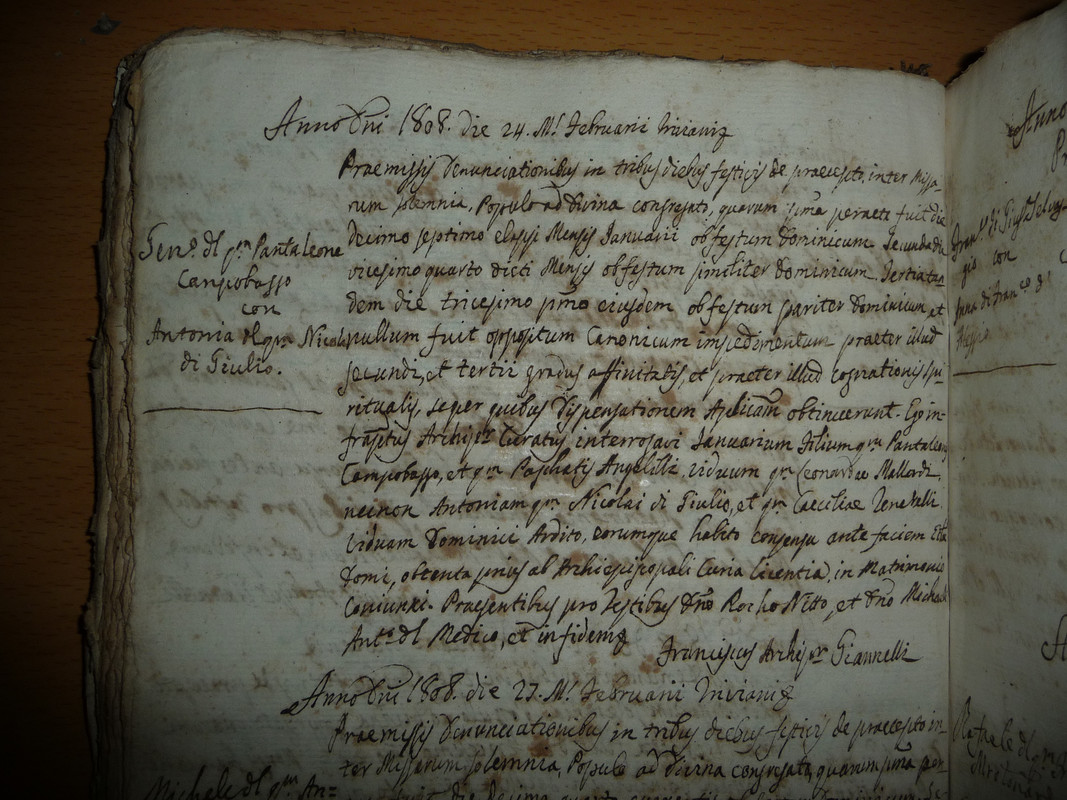 Anno Dni 1808. die 24. Ms. Februarii Triviani
Praemissis Denunciationibus in tribus diebus festivis de praecepto inter Missa-
rum solemnia, Populo ad Divina congregato, quarum pma peracta fuit die
decimo septimo elapsi Mensis Januarii ob festum Dominicum Secunda die
vicesimo quarto dicti Mensis ob festum similiter Dominicum Tertia tan-
dem die tricesimo pmo ejusdem ob festum pariter Dominicum, et
nullum fuit oppositum Canonicum impedimentum praeter illud
secundi, et tertii gradus affinitatis, et praeter illud cognationis spi-
ritualis, super quibus Dispensationem Aplicam obtinuerunt. Ego in-
frascptus Archipr Curatus interrogavi Januarium Filium qm Pantaleon
Campobasso, et qm Paschalis Angelilli viduum qm Leonardae Mallardi,
necnon Antoniam qm Nicolai di Giulio, et qm Caeciliae Venetelli
Viduam Dominici Ardito, eorumque habito consensu ante faciem
Domi, obtenta prius ab Archiepiscopali Curia licentia, in Matrimonio
Coniunxi. Praesentibus pro Testibus Dno Rocho Nitto, et Dno Michaele
Anto del Medico, et in fidem
Franciscus Archipr Giannelli
Genro dl qm Pantaleone
Campobasso
con
Antonia dl qm Nicola
di Giulio.
Anno Dni 1808. die 27. Ms. Februarii Triviani
Praemissis Denunciationibus in tribus diebus festivis de praecepto in-
ter Missarum solemnia, Populo ad Divina congregato, quarum pma per-
Michele dl qm An-
Anno
con